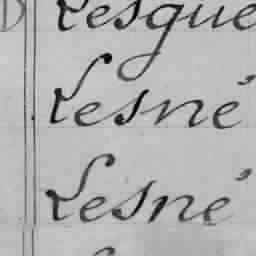 Lesque
Lesné
Lesné